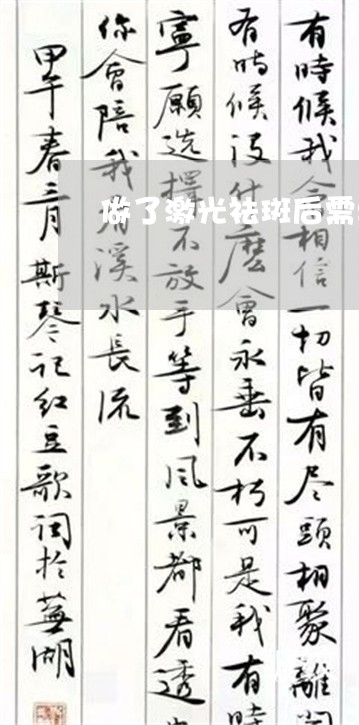 有時候我會相信一切皆有尽頭相聚離
有時候没什麽會永垂不朽可是我有時
寧願选擇不放手等到风景都看透
你會陪我看溪水長流
甲午春三月斯琴记红豆歌词於蕪湖
做了激光祛斑后需